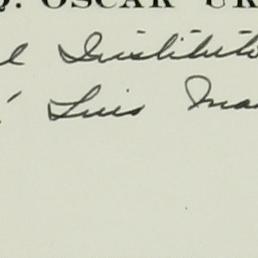 Q. OSCAR UR
l Instituti
Luis Ma